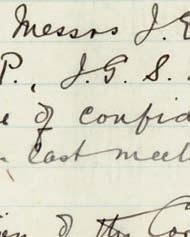 Messrs J.
P., J.G.S.
of confid
last meet
of the Co